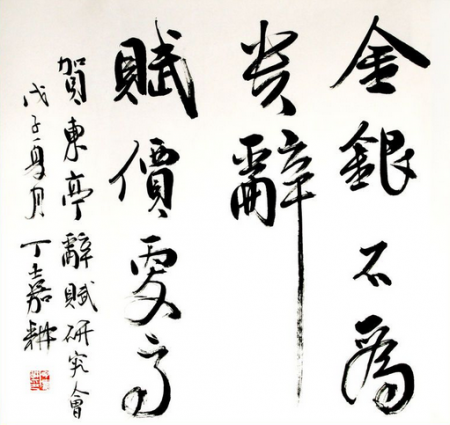 金銀不為
貴辭
賦價更高
賀東亭辭賦研究會
戊子夏月丁嘉耕